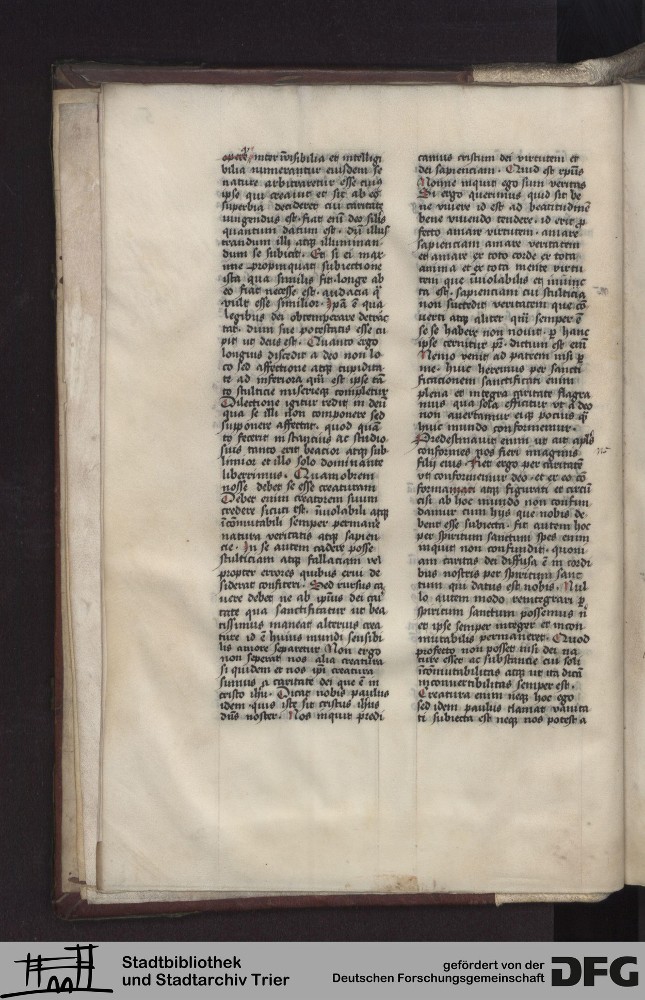 opere inter invisibilia et intelligi
bilia numerantur eiusdem se
nature arbitraretur esse cuius
ipse qui creavit et sic ab eo
superbia decideret cui caritate
iungendus est. fiat enim deo similis
quantum datum est. dum illus
trandum illi atque illuminan
dum se subicit. Et si ei max
ime propinquat subiectione
ista qua similis fit. longe ab
eo fiat necesse est. audacia qua
vult esse similior. Ipsa est qua
legibus dei obtemperare detrac
tat. dum sue potestatis esse cu
pit ut deus est. Quanto ergo
longius discedit a deo non lo
co sed affectione atque cupidita
te ad inferiora quam est ipse tan
to stulticie miserieque completur
Dilectione igitur redit in deum
qua se illi non componere sed
supponere affectat. quod quan
to fecerit instancius ac studio
sius tanto erit beacior atque sub
limior et illo solo dominante
liberrimus. Quamobrem
nosse debet se esse creaturam
Debet enim creatorem suum
credere sicuti est. inviolabili atque
incommutabili semper permanere
natura veritatis atque sapien
cie. In se autem cadere posse
stulticiam atque fallaciam vel
propter errores quibus exui de
siderat confiteri. Sed rursus ca
vere debet ne ab ipsius dei cari
tate qua sanctificatur ut bea
tissimus maneat alterius crea
ture id est huius mundi sensibi
lis amore separetur Non ergo
non seperat nos alia creatura
si quidem et nos ipsi creatura
sumus a caritate dei que est in
cristo ihesu. Dicat nobis paulus
idem quis iste sit cristus ihesus
dominus noster. Nos inquit predi
camus cristum dei virtutem et
dei sapienciam. Quid est cristus
Nonne inquit ego sum veritas
Si ergo querimus quid sit be
ne vivere id est ad beatitudinem
bene vivendo tendere. id erit pro
fecto amare virtutem. amare
sapienciam amare veritatem
et amare ex toto corde ex tota
anima et ex tota mente virtu
tem que inviolabilis et invic
ta est. sapienciam cui stulticia
non succedit veritatem que con
verti atque aliter quam semper est
se se habere non novit. per hanc
ipse cernitur pater. dictum est enim
Nemo venit ad patrem nisi per
me. huic heremus per sancti
ficationem sanctificati enim
plena et integra caritate flagra
mus qua sola efficitur ut a deo
non avertamur eique pocius quam
huic mundo conformemur.
Predestinavit enim ut ait apostolus
conformes nos fieri imaginis
filii eius. Fiet ergo per caritatem
ut conformemur deo. et ex eo con
formati atque figurati et circum
cisi ab hoc mundo non confun
damur cum hiis que nobis de
bent esse subiecta. fit autem hoc
per spiritum sanctum spes enim
inquit non confundit. quoni
am caritas dei diffusa est in cordi
bus nostris per spiritum sanc
tum qui datus est nobis. Nul
lo autem modo reintegrari per
spiritum sanctum possemus nisi
et ipse semper integer et incom
mutabilis permaneret. Quod
profecto non posset nisi dei na
ture esset ac substancie cui soli
incommutabilitas atque ut ita dicam
inconvertibilitas semper est.
Creatura enim neque hoc ego
sed idem paulus clamat vanita
ti subiecta est neque nos potest a
Stadtbibliothek
und Stadtarchiv Trier
gefördert von der
Deutschen Forschungsgemeinschaft
DFG